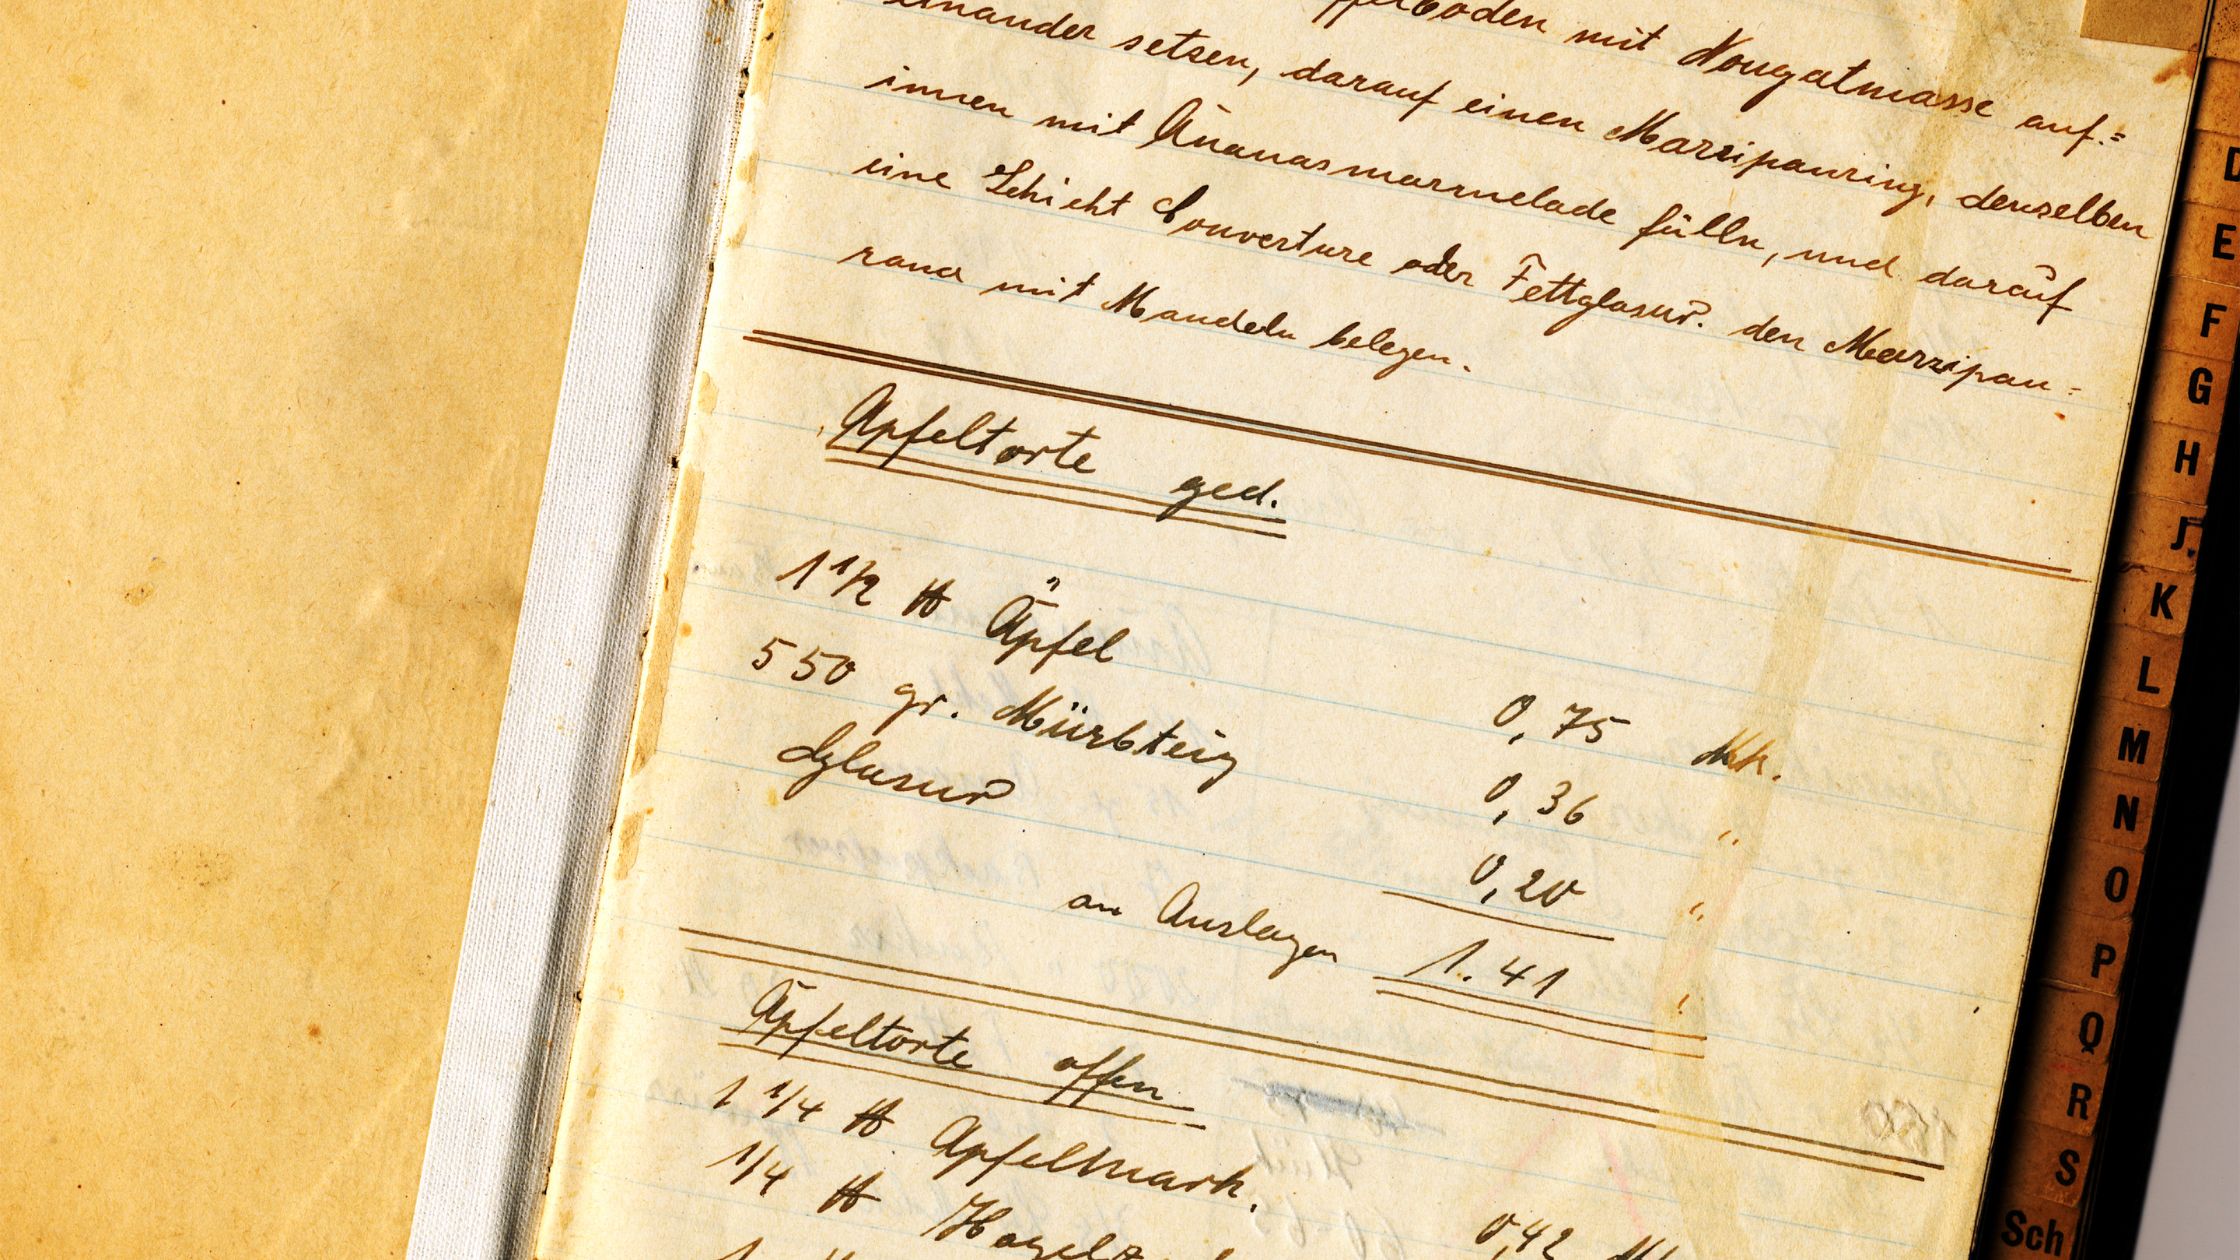 mit Nougatmasse auf.=
einander setzen, darauf einen Marzipanring, denselben
innen mit Ananasmarmelade fülln, und darauf
eine Schicht Couverture oder Fettglasur. den Marzipan=
rand mit Mandeln belegen.
Apfeltorte ged.
1 1/2 ℔ Äpfel 0,75 Mk.
550 gr. Mürbteig 0,36 "
Glasur 0,20 "
an Auslagen 1.41 "
Äpfeltorte offen
1 1/4 ℔ Apfelmark. 0,42
1/4 ℔
D
E
F
G
H
J.
K
L
M
N
O
P
Q
R
S
Sch